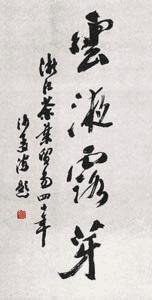 雲液露芽
浙江茶業貿易四十年
沙孟海題